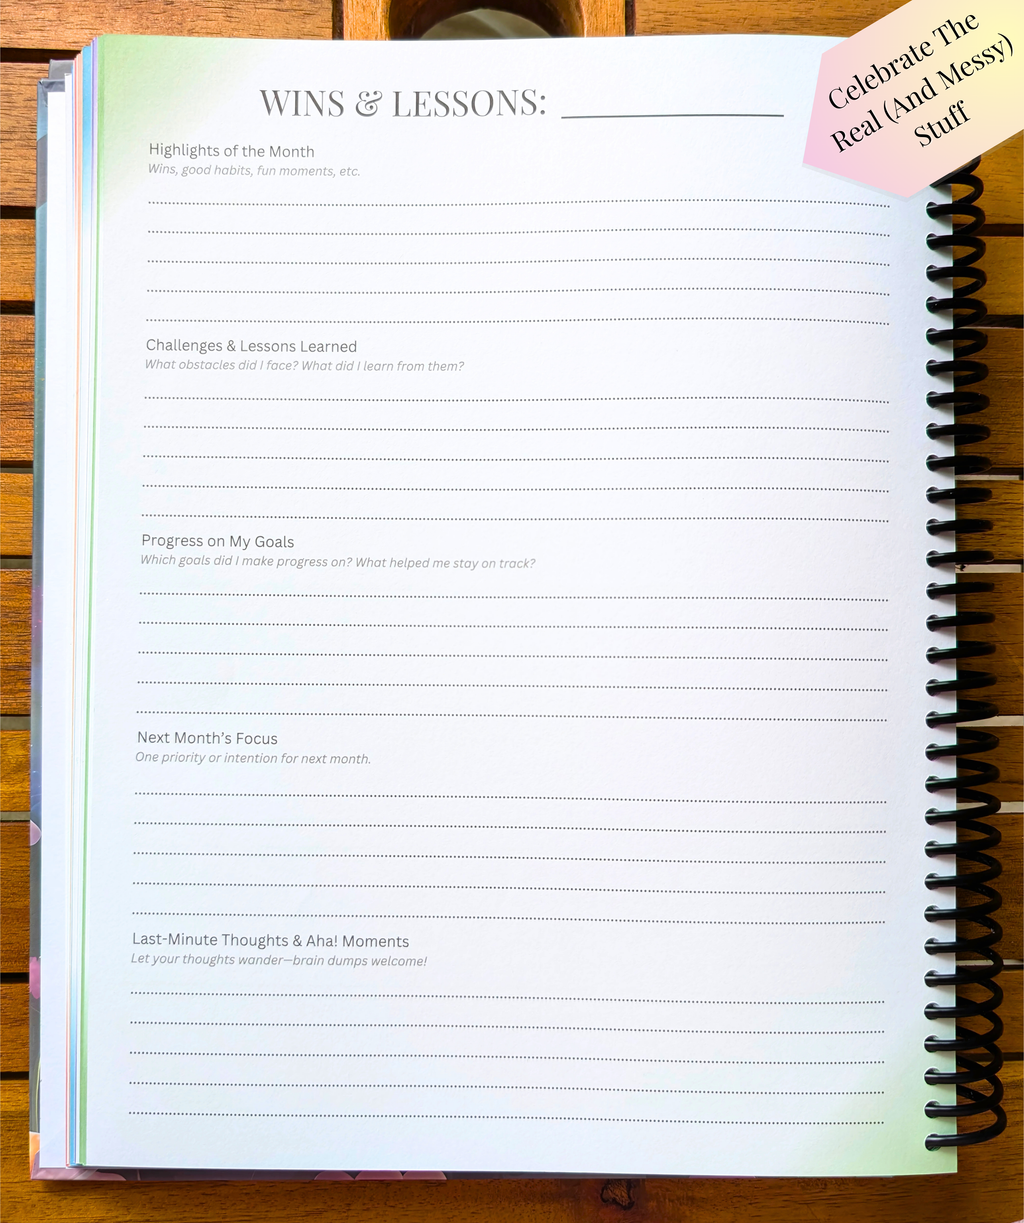 WINS & LESSONS:
Celebrate The
Real (And Messy)
Stuff
Highlights of the Month
Wins, good habits, fun moments, etc.
Challenges & Lessons Learned
What obstacles did I face? What did I learn from them?
Progress on My Goals
Which goals did I make progress on? What helped me stay on track?
Next Month’s Focus
One priority or intention for next month.
Last-Minute Thoughts & Aha! Moments
Let your thoughts wander—brain dumps welcome!